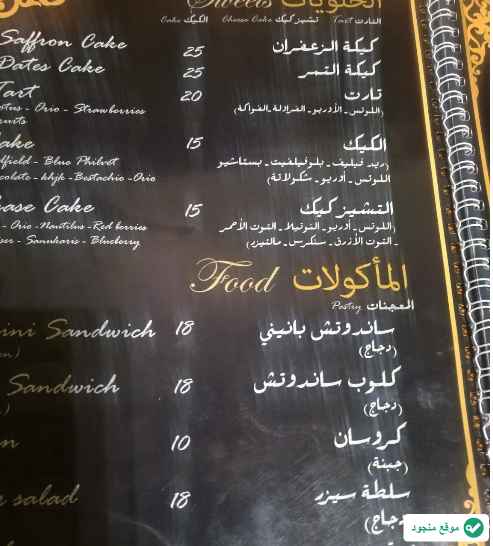 Sweets الحلويات
الكيك Cake تشيز كيك Cheese Cake التارت Tart
Saffron Cake 25 كيكة الزعفران
Dates Cake 25 كيكة التمر
Tart 20 تارت
Orio - Strawberries (اللوتس - الأوريو - الفراولة - الفواكة)
15 الكيك
Blue Philvet (ريد فيليف - بلوفيلفيت - بستاشيو
khjk - Bestachio - Orio اللوتس - أوريو - شكولاتة)
Cake 15 التشيز كيك
- Orio - Nautilus - Red berries (اللوتس - أوريو - النوتيلا - التوت الأحمر
- Sanukaris - Blueberry - التوت الأزرق - سنكرس - مالتيزر)
Food المأكولات
المعجنات Pastry
Sandwich 18 ساندوتش بانيني
(دجاج)
Sandwich 18 كلوب ساندوتش
(دجاج)
10 كروسان
(جبنة)
salad 18 سلطة سيزر
(دجاج)
موقع منجود